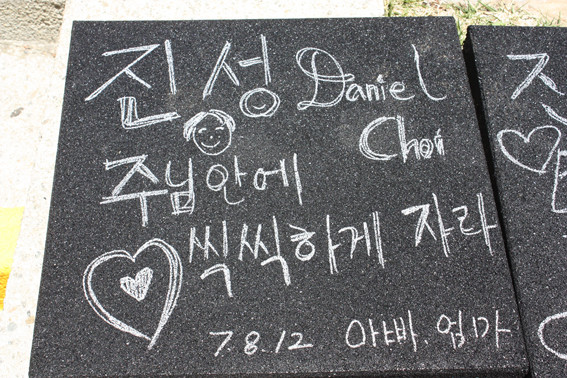 진성 Daniel
Choi
주님안에
씩씩하게 자라
7.8.12 아빠.엄마